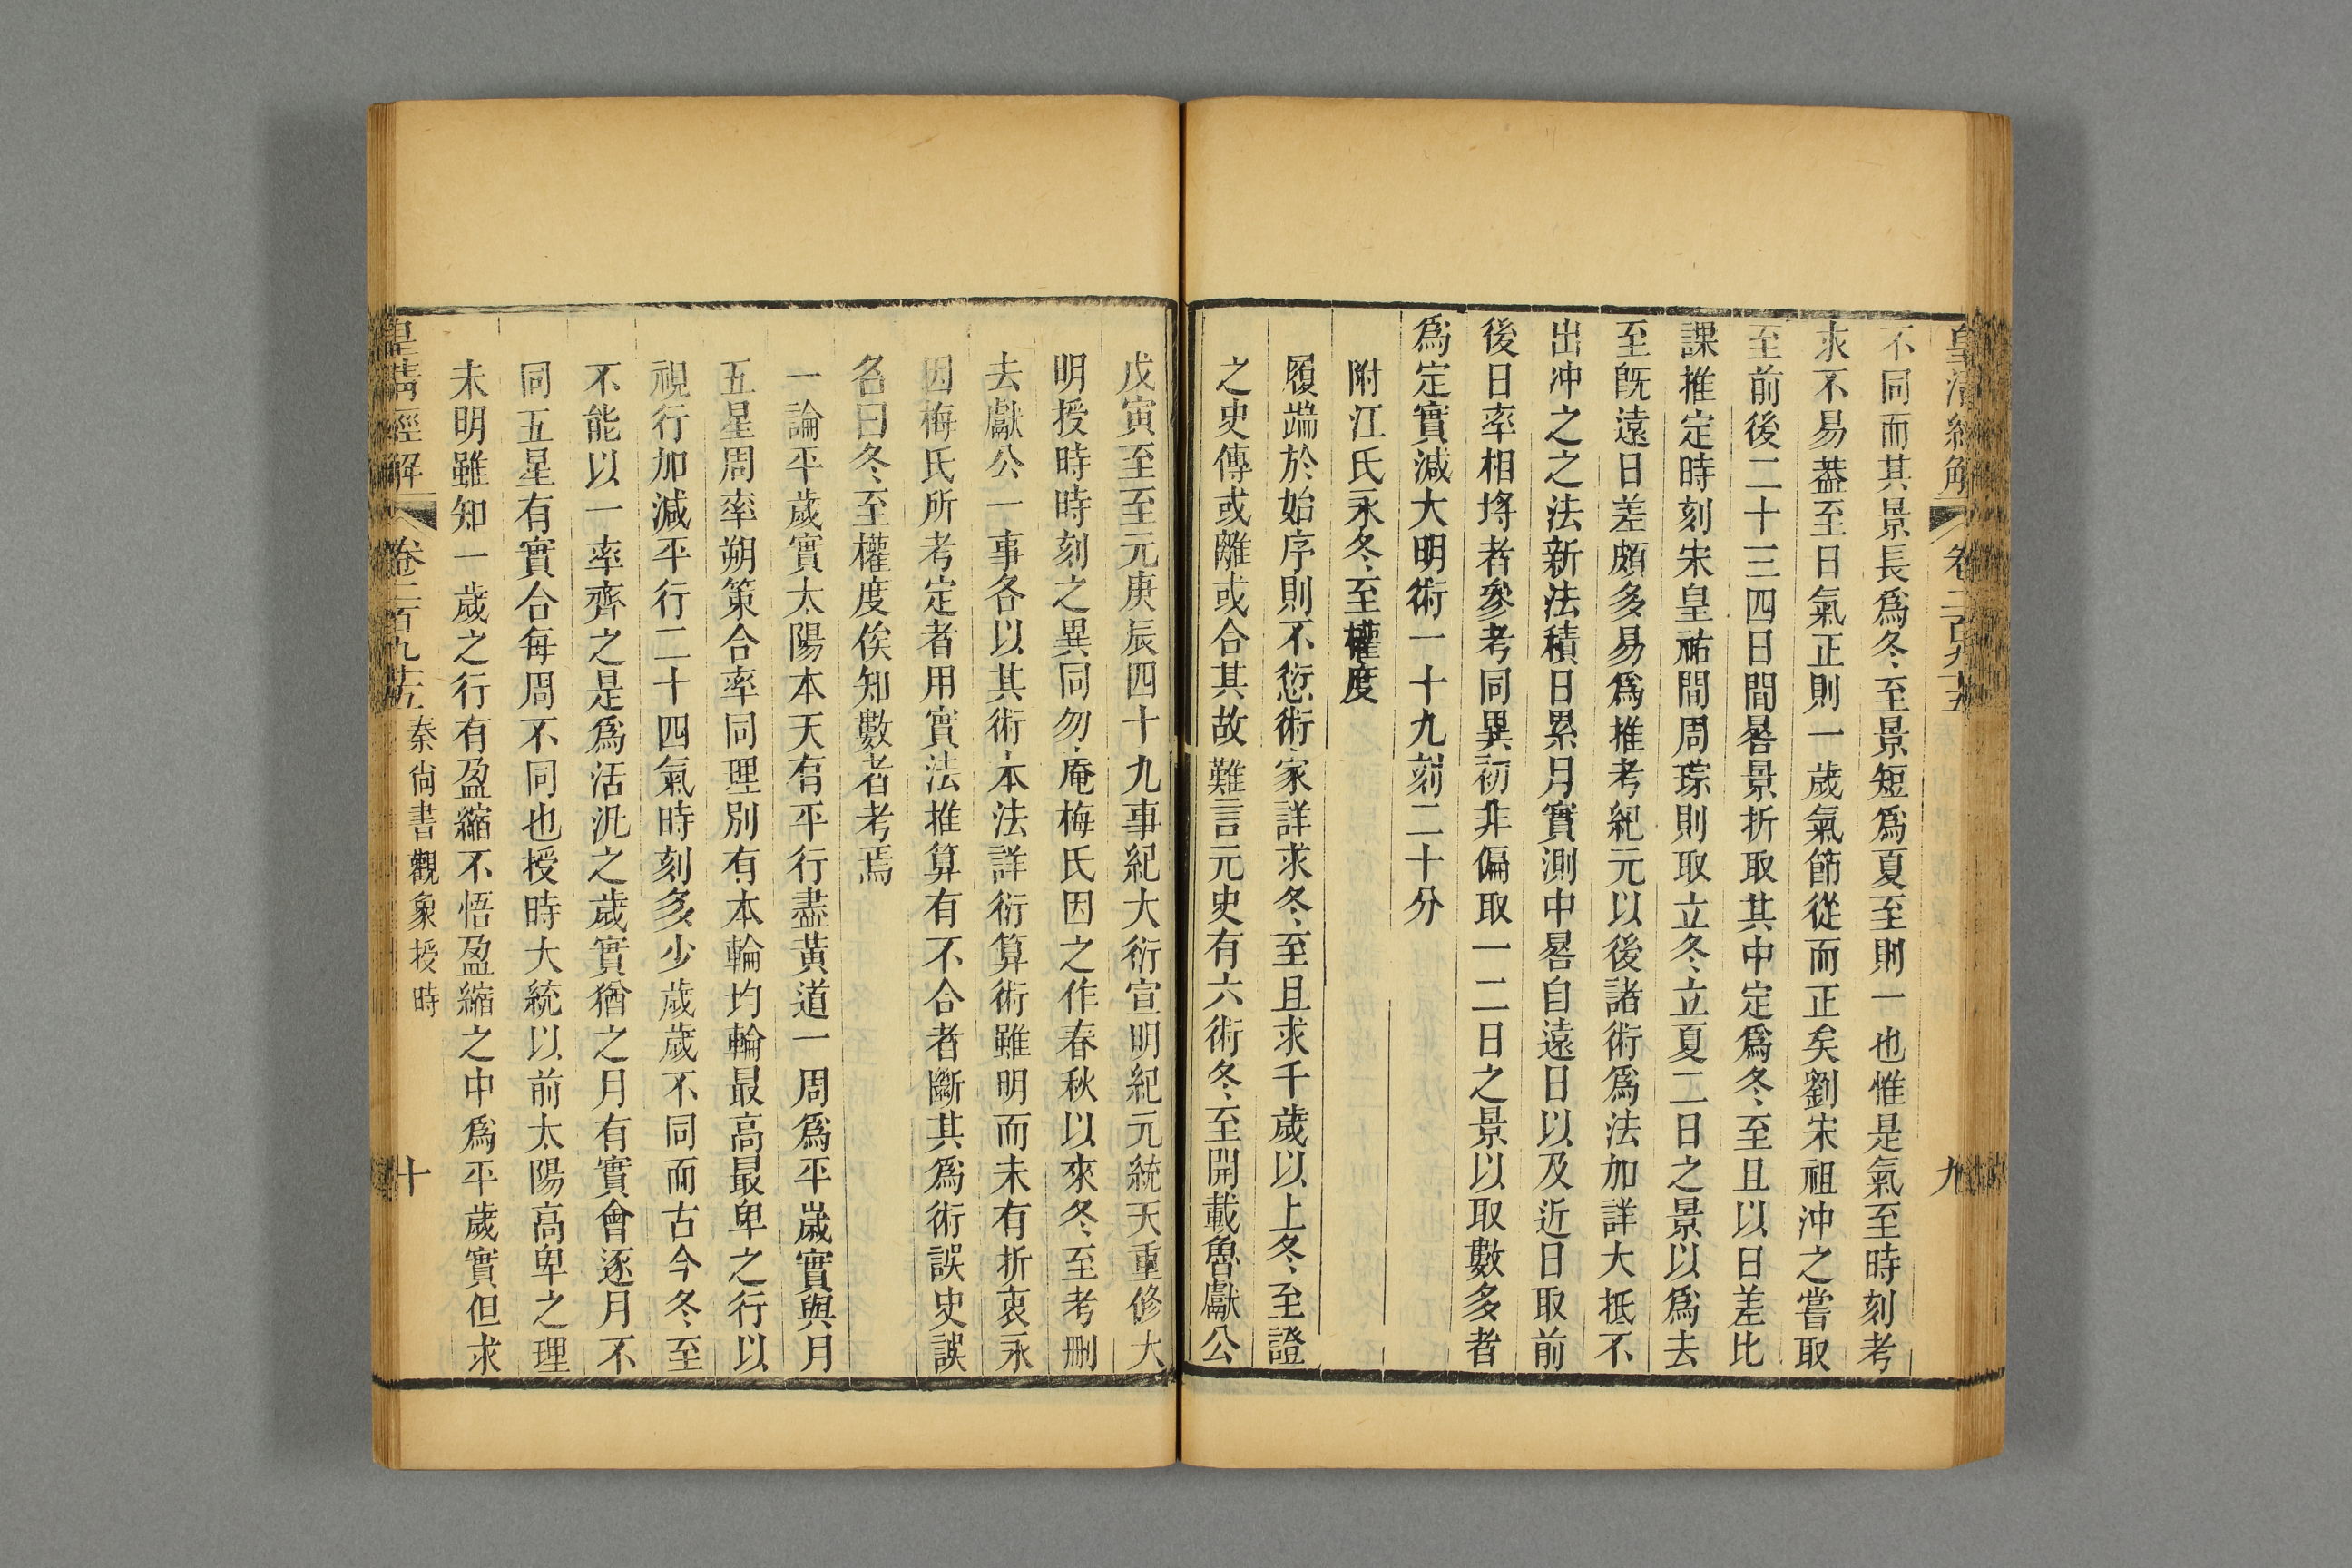 皇清經解
卷二百九十五
九
不同而其景長爲冬至景短爲夏至則一也惟是氣至時刻考
求不易葢至日氣正則一歲氣節從而正矣劉宋祖沖之嘗取
至前後二十三四日間晷景折取其中定爲冬至且以日差比
課推定時刻宋皇祐間周琮則取立冬立夏二日之景以爲去
至旣遠日差頗多易爲推考紀元以後諸術爲法加詳大抵不
出沖之之法新法積日累月實測中晷自遠日以及近日取前
後日率相埒者參考同異初非偏取一二日之景以取數多者
爲定實減大明術一十九刻二十分
附江氏永冬至權度
履端於始序則不愆術家詳求冬至且求千歲以上冬至證
之史傳或離或合其故難言元史有六術冬至開載魯獻公
戊寅至至元庚辰四十九事紀大衍宣明紀元統天重修大
明授時時刻之異同勿庵梅氏因之作春秋以來冬至考刪
去獻公一事各以其術本法詳衍算術雖明而未有折衷永
因梅氏所考定者用實法推算有不合者斷其爲術誤史誤
名曰冬至權度俟知數者考焉
一論平歲實太陽本天有平行盡黃道一周爲平歲實與月
五星周率朔策合率同理別有本輪均輪最高最卑之行以
視行加減平行二十四氣時刻多少歲歲不同而古今冬至
不能以一率齊之是爲活汎之歲實猶之月有實會逐月不
同五星有實合每周不同也授時大統以前太陽高卑之理
未明雖知一歲之行有盈縮不悟盈縮之中爲平歲實但求
皇清經解
卷二百九十五
秦尙書觀象授時
十